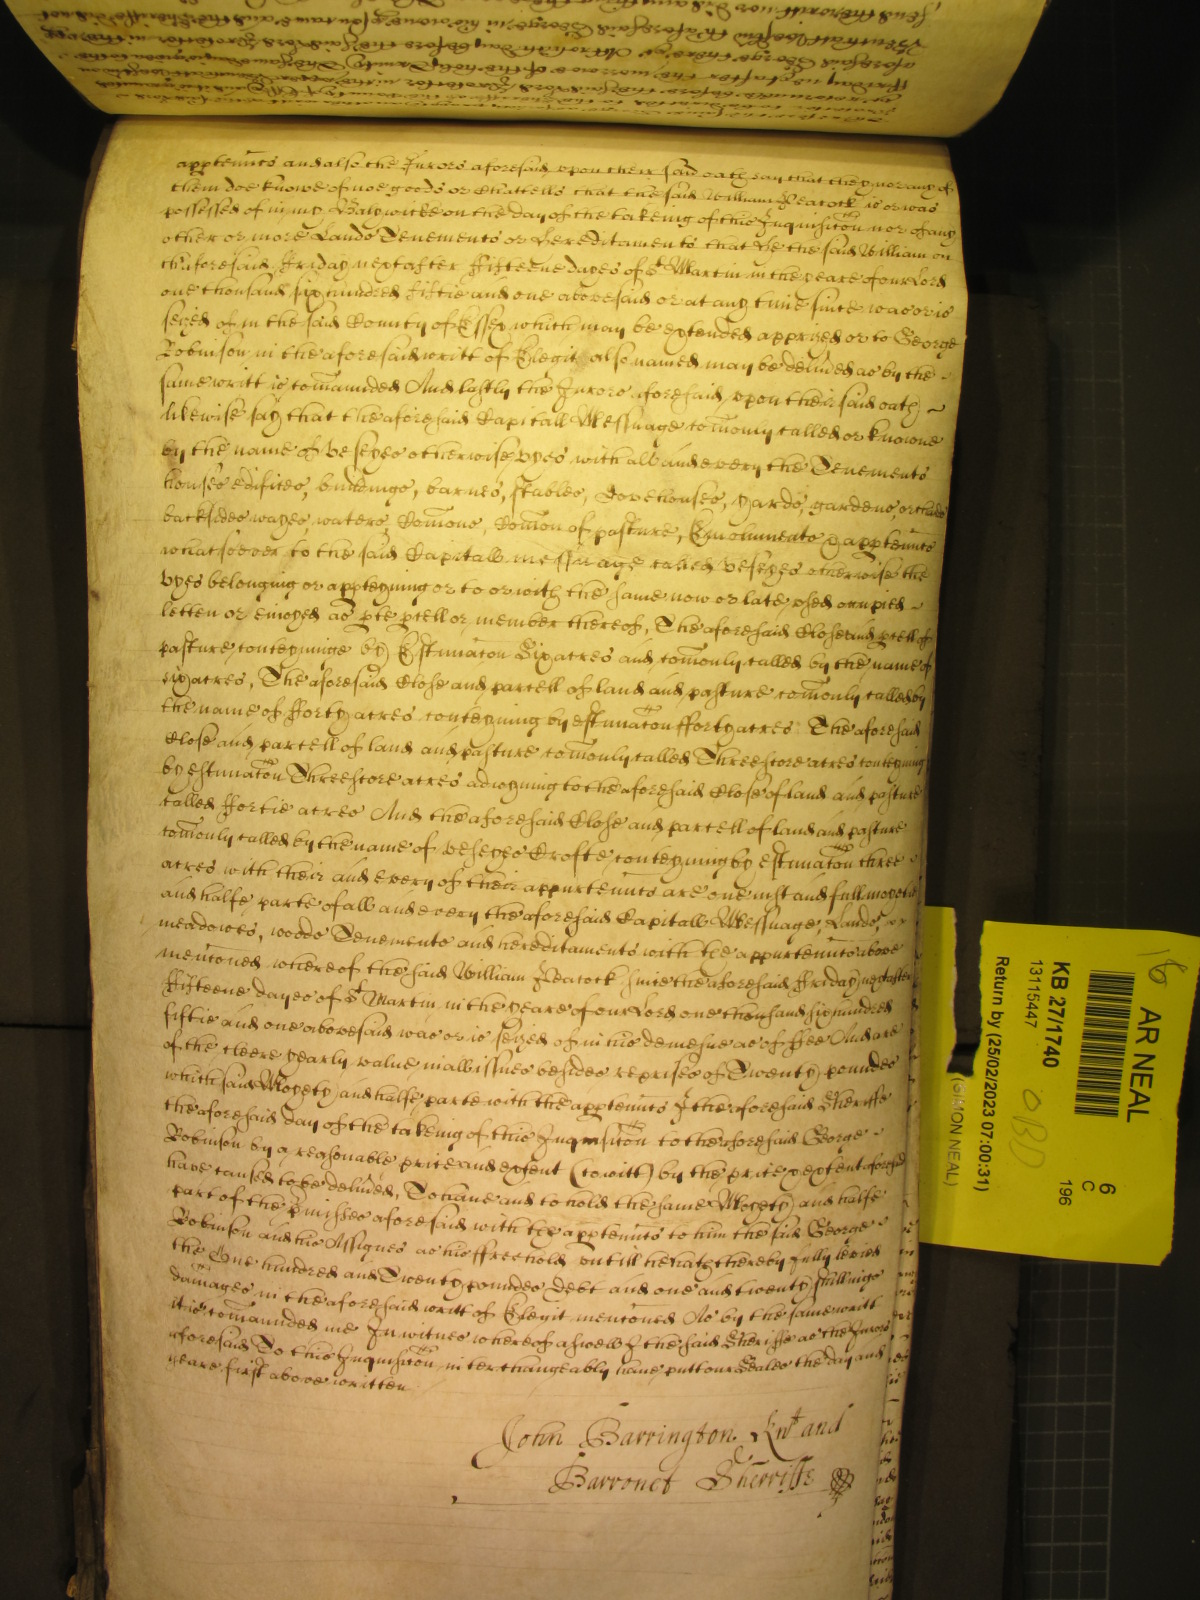 apptennts and also the Jurors aforesaid upon their said oath say that they nor any of
them doe knowe of noe goods or Chattells that the said William Peacock is or was
possessed of in my Baliwicke on the day of the takeing of this Inquisicon nor of any
other or more Lands Tenements or hereditaments that he the said William on
the aforesaid Friday next after Fifteene dayes of St Martin in the yeare of our Lord
one thousand six hundred Fiftie and one abovesaid or at any time since was or is
seized of in the said County of Essex which may be extended apprized or to George
Robinson in the aforesaid writt of Elegit also named may be delivered as by the
same writt is comaunded And lastly the Jurors aforesaid upon their said oath
likewise say that the aforesaid Capitall Messuage comonly called or knowne
by the name of veseyes otherwise vyes with all and every the Tenements
houses edifices, buildings, barnes, stables, Dovehouses, yards, gardens, orchards
backsides wayes, waters, Comons, Comon of pasture, Emoluments & apptennts
whatsoever to the said Capitall messuage called veseyes otherwise the
vyes belonging or appteyning or to or with the same now or late used occupied
letten or enioyed as pte pcell or member thereof, The aforesaid Close and pcell of
pasture conteyninge by Estimacon Six acres and comonly called by the name of
six acres, The aforesaid Close and parcell of land and pasture comonly called by
the name of fforty acres conteyning by estimacon fforty acres The aforesaid
Close and parcell of land and pasture comonly called Threescore acres conteyning
by estimacon Threescore acres adioyning to the aforesaid Close of land and pasture
called ffortie acres And the aforesaid Close and parcell of land and pasture
comonly called by the name of veseyes Crofte conteyning by estimacon three
acres with their and every of their appurtennts are one iust and full moyetie
and halfe parte of all and every the aforesaid Capitall Messuage, Lands,
meadowes, woods Tenements and hereditaments with the appurtennts above
mencioned whereof the said William Peacock since the aforesaid Friday next after
Fifteene dayes of St Martin in the yeare of our Lord one thousand six hundred
fiftie and one abovesaid was or is seized of in his demesne as of ffee And are
of the cleere yearly value in all issues besides reprises of Twenty pounds
which said Moyety and halfe parte with the apptennts I the aforesaid Sheriffe
the aforesaid day of the takeing of this Inquisicon to the aforesaid George
Robinson by a reasonable price and extent (to witt) by the price & extent aforesaid
have caused to be delivered, To have and to hold the same Moyety and halfe
part of the Pmisses aforesaid with the apptennts to him the said George
Robinson and his Assignes as his ffreehold untill he hath thereby fully levied
the One hundred and Twenty pounds debt and one and twenty shillings
damages in the aforesaid writt of Elegit mentioned As by the same writt
it is comaunded me In witnes whereof aswell I the said Sheriffe as the Jurors
aforesaid To this Inquisicon interchangeably have putt our Seales the day and
yeare first above written
John Barrington Knt and
Barronet Sherriffe
AR NEAL
KB 27/1740
13115447
Return by (25/02/2023 07:00:31)
6
C
196
(SIMON NEAL)
18